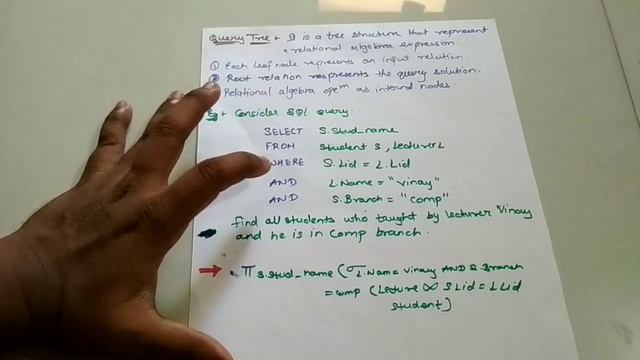 Query Tree → It is a tree structure that represent
a relational algebra expression.
① Each leaf node represents an input relution.
② Root relation respresents the query solution.
Relational algebra opeⁿ as internal nodes
Eg → Consider SQL query.
SELECT S.Stud_name
FROM Student S, Lecturer L
WHERE S.Lid = L.Lid
AND L.Name = "Vinay"
AND S.Branch = "Comp"
find all students who taught by lecturer Vinay
and he is in comp branch.
π S.Stud_name (σ L.Name = Vinay AND S.Branch
= comp (Lecture ∞ S Lid = L Lid
Student)